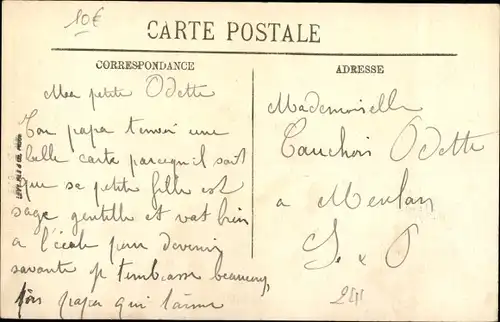 10€
CARTE POSTALE
CORRESPONDANCE
ADRESSE
Ma petite Odette
Ton papa t'envoi une
belle carte parcequ'il sait
que sa petite fille est
sage gentille et vat bien
a l'école pour devenir
savante je t'embrasse beaucoup
ton papa qui t'aime
Mademoiselle
Cauchois Odette
a Meulan
S. & O